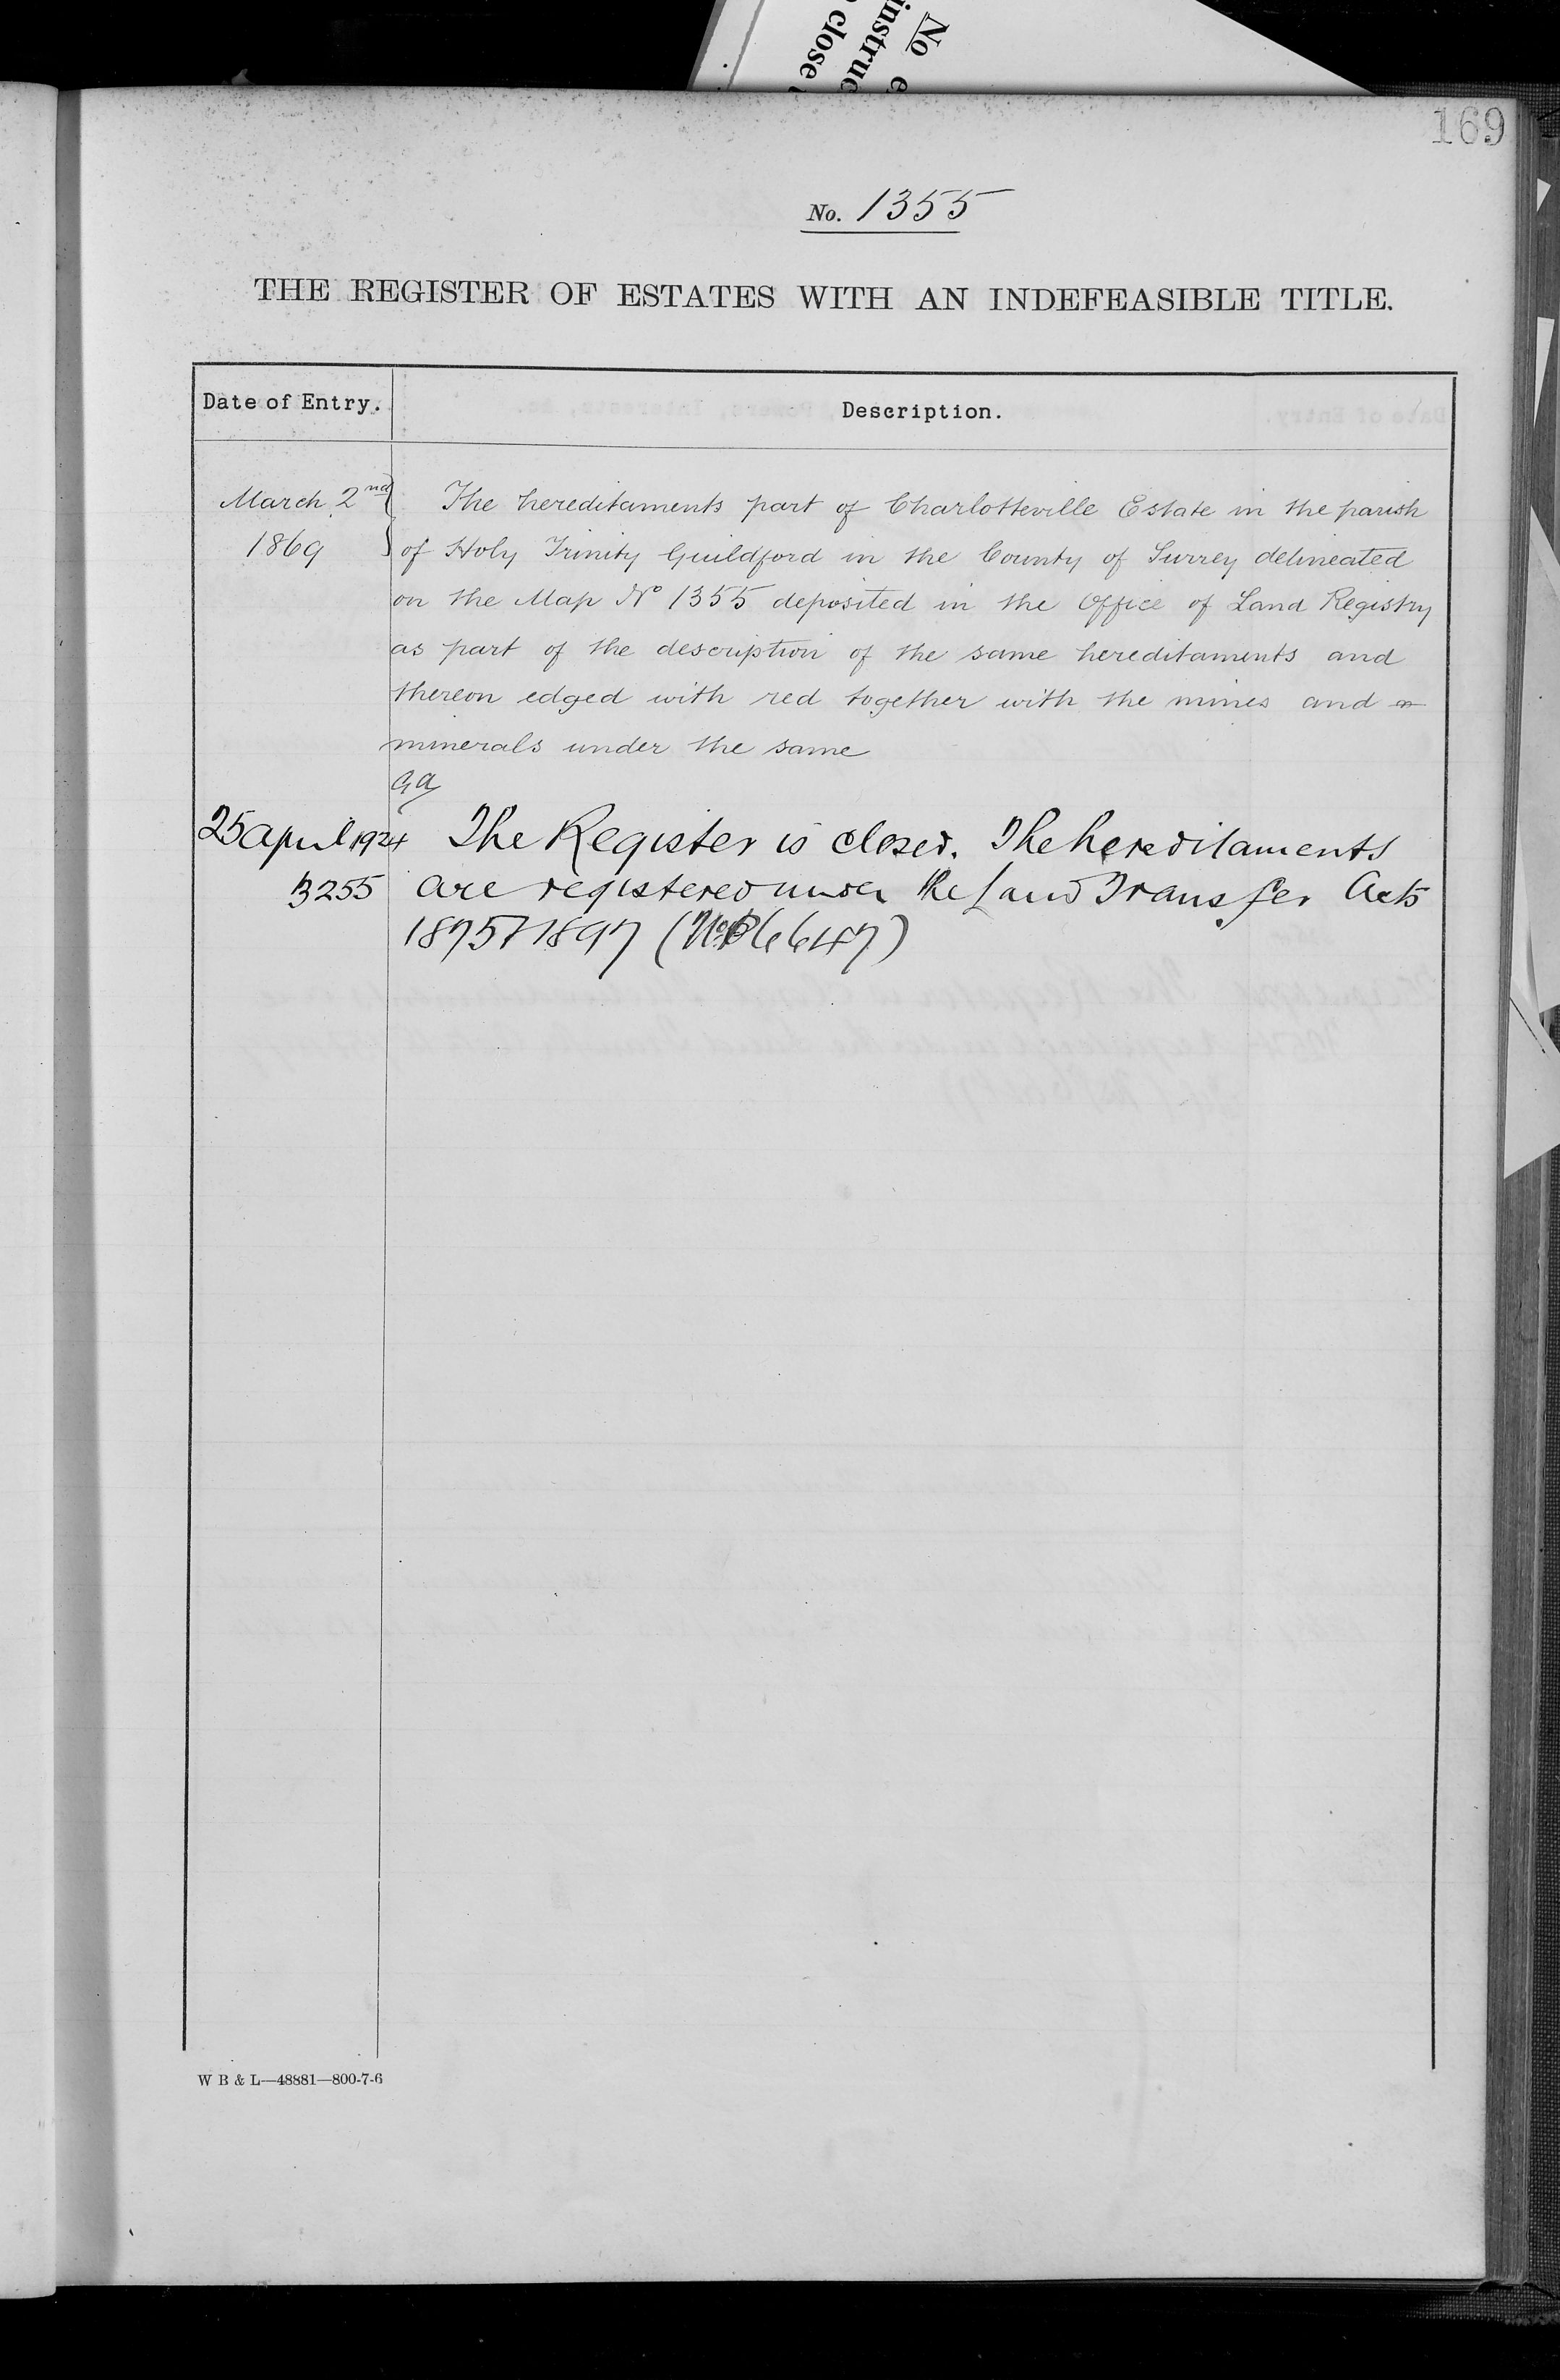 No
instruc
close
169
No. 1355
THE REGISTER OF ESTATES WITH AN INDEFEASIBLE TITLE.
Date of Entry.
Description.
March 2nd
1869
The hereditaments part of Charlotteville Estate in the parish
of Holy Trinity Guildford in the County of Surrey delineated
on the Map No 1355 deposited in the Office of Land Registry
as part of the description of the same hereditaments and
thereon edged with red together with the mines and m
minerals under the same
GA
25 April 1924
3255
The Register is closed. The hereditaments
are registered under the Land Transfer Acts
1875 & 1897 (No. P6647)
W B & L—48881—800-7-6